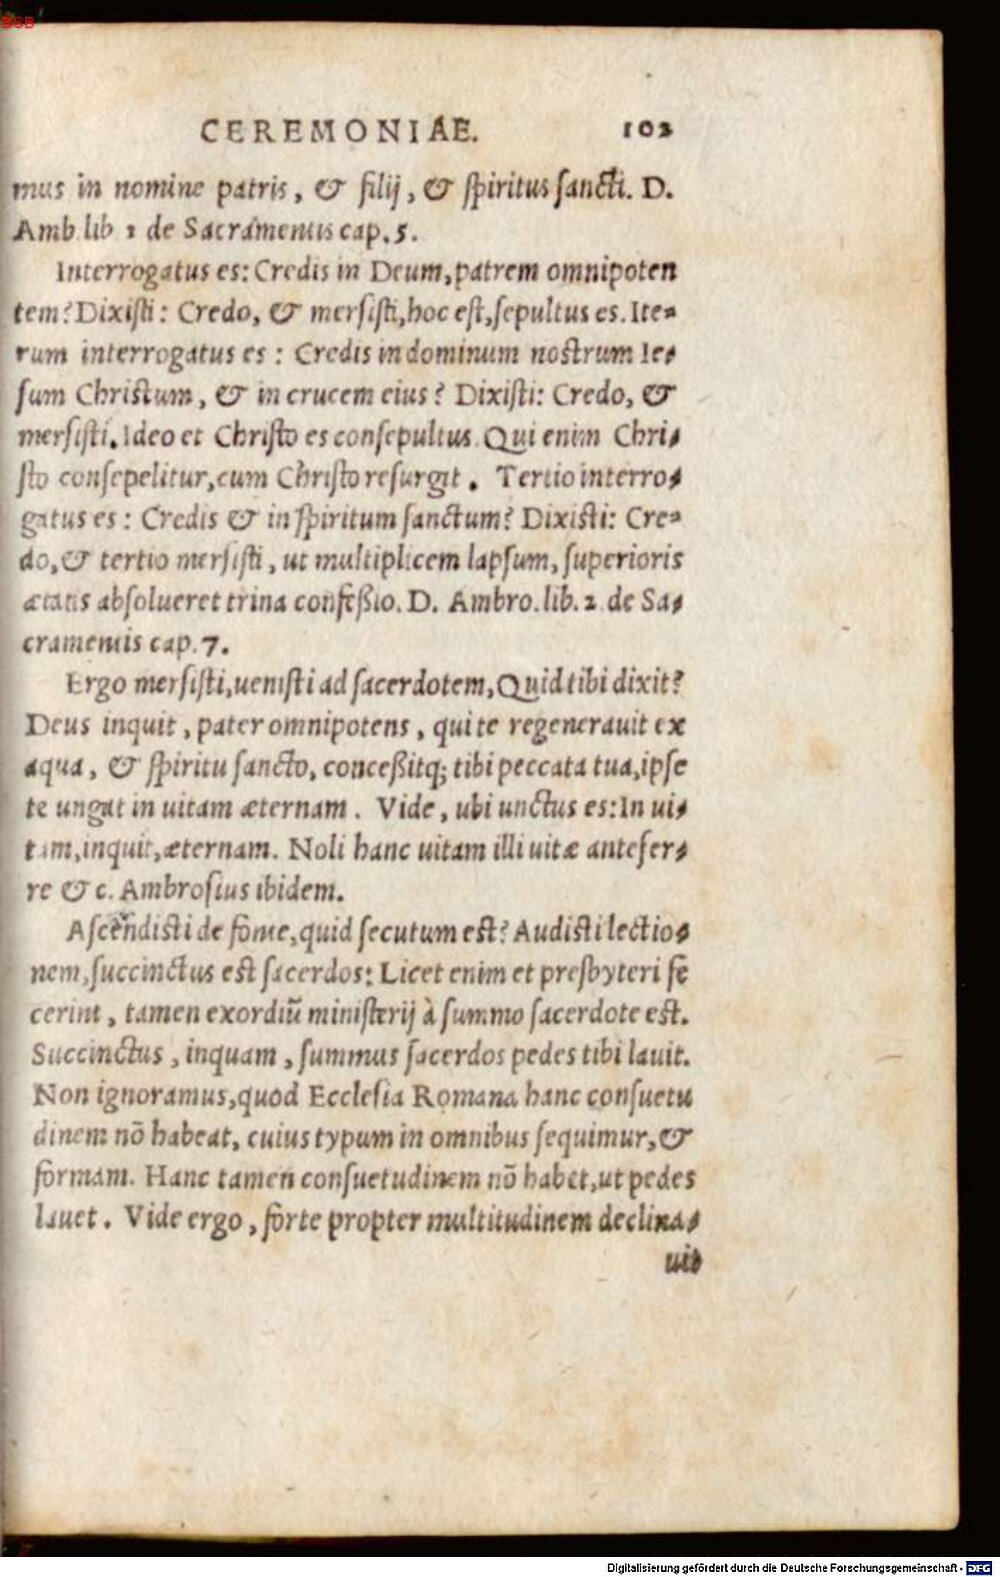 BSB
CEREMONIAE. 102
mus in nomine patris, & filij, & spiritus sancti. D.
Amb. lib 1 de Sacramentis cap. 5.
Interrogatus es: Credis in Deum, patrem omnipoten
tem? Dixisti: Credo, & mersisti, hoc est, sepultus es. Ite-
rum interrogatus es: Credis in dominum nostrum Ie-
sum Christum, & in crucem eius? Dixisti: Credo, &
mersisti. Ideo et Christo es consepultus. Qui enim Chri-
sto consepelitur, cum Christo resurgit. Tertio interro-
gatus es: Credis & in spiritum sanctum? Dixisti: Cre-
do, & tertio mersisti, ut multiplicem lapsum, superioris
ætatis absolueret trina confeßio. D. Ambro. lib. 2 de Sa-
cramentis cap. 7.
Ergo mersisti, uenisti ad sacerdotem, Quid tibi dixit?
Deus inquit, pater omnipotens, qui te regenerauit ex
aqua, & spiritu sancto, conceßitq; tibi peccata tua, ipse
te ungat in uitam æternam. Vide, ubi unctus es: In ui-
tam, inquit, æternam. Noli hanc uitam illi uitæ antefer-
re & c. Ambrosius ibidem.
Ascendisti de fonte, quid secutum est? Audisti lectio-
nem, succinctus est sacerdos: Licet enim et presbyteri fe
cerint, tamen exordiū ministerij à summo sacerdote est.
Succinctus, inquam, summus sacerdos pedes tibi lauit.
Non ignoramus, quod Ecclesia Romana hanc consuetu
dinem nō habeat, cuius typum in omnibus sequimur, &
formam. Hanc tamen consuetudinem nō habet, ut pedes
lauet. Vide ergo, forte propter multitudinem declina-
uit
Digitalisierung gefördert durch die Deutsche Forschungsgemeinschaft - DFG